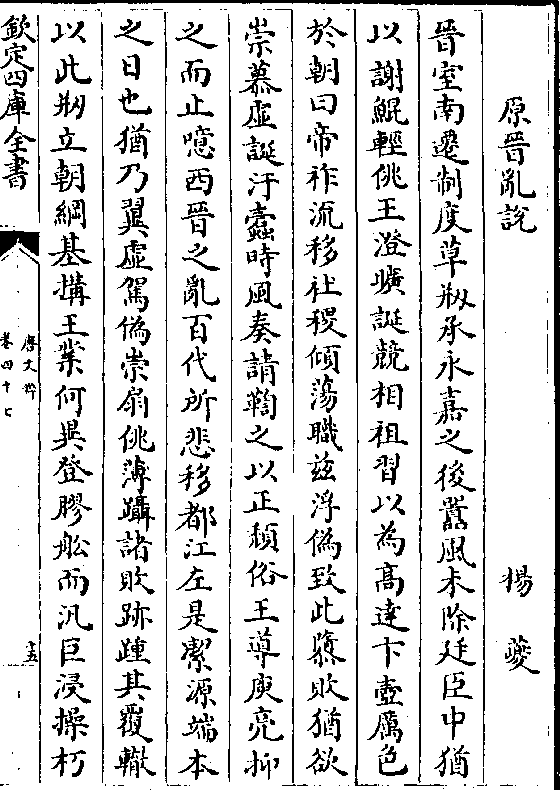 原晉亂說
楊夔
晉室南遷制度草刱承永嘉之後嚚風未除廷臣中猶
以謝鯤輕佻王澄曠誕競相祖習以為髙達卞壼厲色
於朝曰帝祚流移社稷傾蕩職兹浮偽致此隳敗猶欲
崇慕虛誕汙蠧時風奏請鞫之以正頹俗王導庾亮抑
之而止噫西晉之亂百代所悲移都江左是潔源端本
之日也猶乃翼虛駕偽崇扇佻薄躡諸敗跡踵其覆轍
以此刱立朝綱基搆王業何異登膠舩而汎巨浸操朽
欽定四庫全書
唐文粹
卷四十七
十五